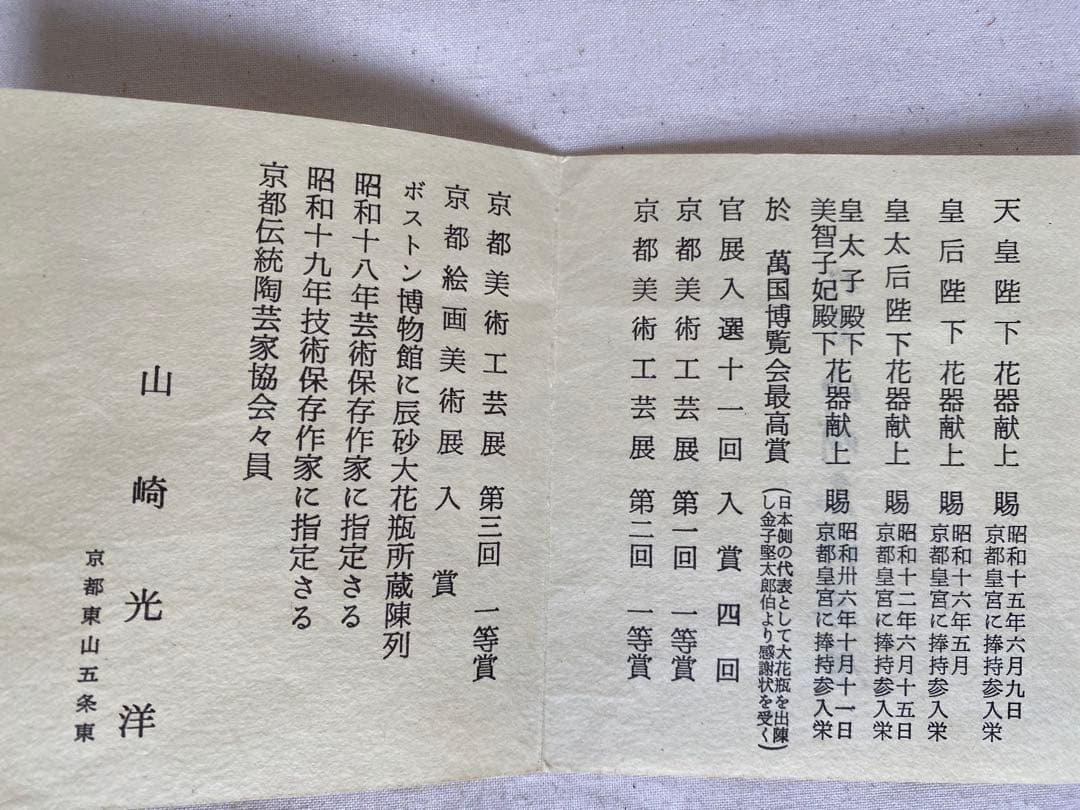 天皇陛下 花器献上 賜 昭和十五年六月九日
京都皇宮に捧持参入栄
皇后陛下 花器献上 賜 昭和十六年五月
京都皇宮に捧持参入栄
皇太后陛下花器献上 賜 昭和十二年六月十五日
京都皇宮に捧持参入栄
皇太子殿下
美智子妃殿下花器献上 賜 昭和卅六年十月十一日
京都皇宮に捧持参入栄
於 萬国博覧会最高賞 (日本側の代表として大花瓶を出陳
し金子堅太郎伯より感謝状を受く)
官展入選十一回 入賞四回
京都美術工芸展 第一回 一等賞
京都美術工芸展 第二回 一等賞
京都美術工芸展 第三回 一等賞
京都絵画美術展 入賞
ボストン博物館に辰砂大花瓶所蔵陳列
昭和十八年芸術保存作家に指定さる
昭和十九年技術保存作家に指定さる
京都伝統陶芸家協会々員
山崎光洋
京都東山五条東